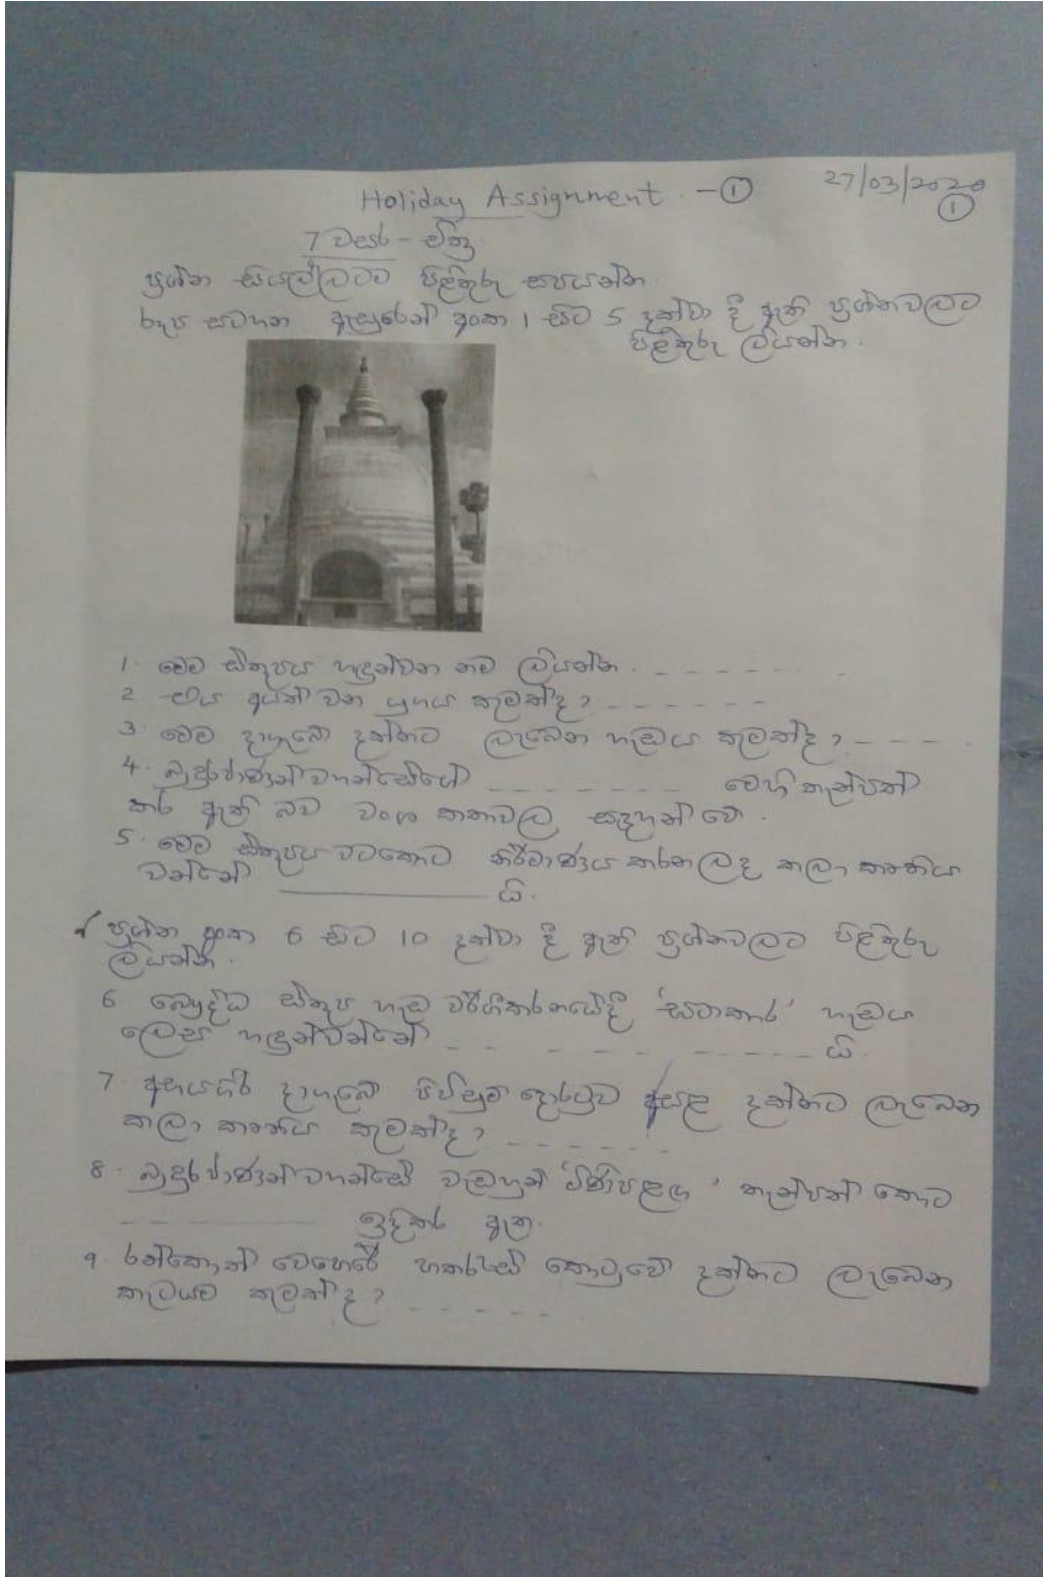 Holiday Assignment - ①
27/03/2020
①
7 වසර - චිත්‍ර
ප්‍රශ්න සියල්ලටම පිළිතුරු සපයන්න
රූප සටහන ඇසුරෙන් අංක 1 සිට 5 දක්වා දී ඇති ප්‍රශ්නවලට
පිළිතුරු ලියන්න.
1. මෙම ස්තූපය හඳුන්වන නම ලියන්න. - - - - - -
2 එය අයත් වන යුගය කුමක්ද? - - - - - -
3. මෙම දාගැබේ දක්නට ලැබෙන හැඩය කුමක්ද? - - - -
4. බුදුරජාණන් වහන්සේගේ - - - - - - - මෙහි තැන්පත්
කර ඇති බව වංශ කතාවල සඳහන් වේ.
5. මෙම ස්තූපය වටකොට නිර්මාණය කරන ලද කලා කෘතිය
වන්නේ ____________ යි.
ප්‍රශ්න අංක 6 සිට 10 දක්වා දී ඇති ප්‍රශ්නවලට පිළිතුරු
ලියන්න.
6 බෞද්ධ ස්තූප හැඩ වර්ගීකරනයේදී 'සටාකාර' හැඩය
ලෙස හඳුන්වන්නේ - - - - - - - - - යි.
7 අභයගිරි දාගැබේ පිවිසුම් දොරටුව අසළ දක්නට ලැබෙන
කලා කෘතිය කුමක්ද? - - - - - -
8. බුදුරජාණන් වහන්සේ වැඩහුන් 'මිණිපළඟ' තැන්පත් කොට
- - ________ ඉදිකර ඇත.
9. රන්කොත් වෙහෙරේ හතරැස් කොටුවේ දක්නට ලැබෙන
කැටයම කුමක් ද? - - - - - -